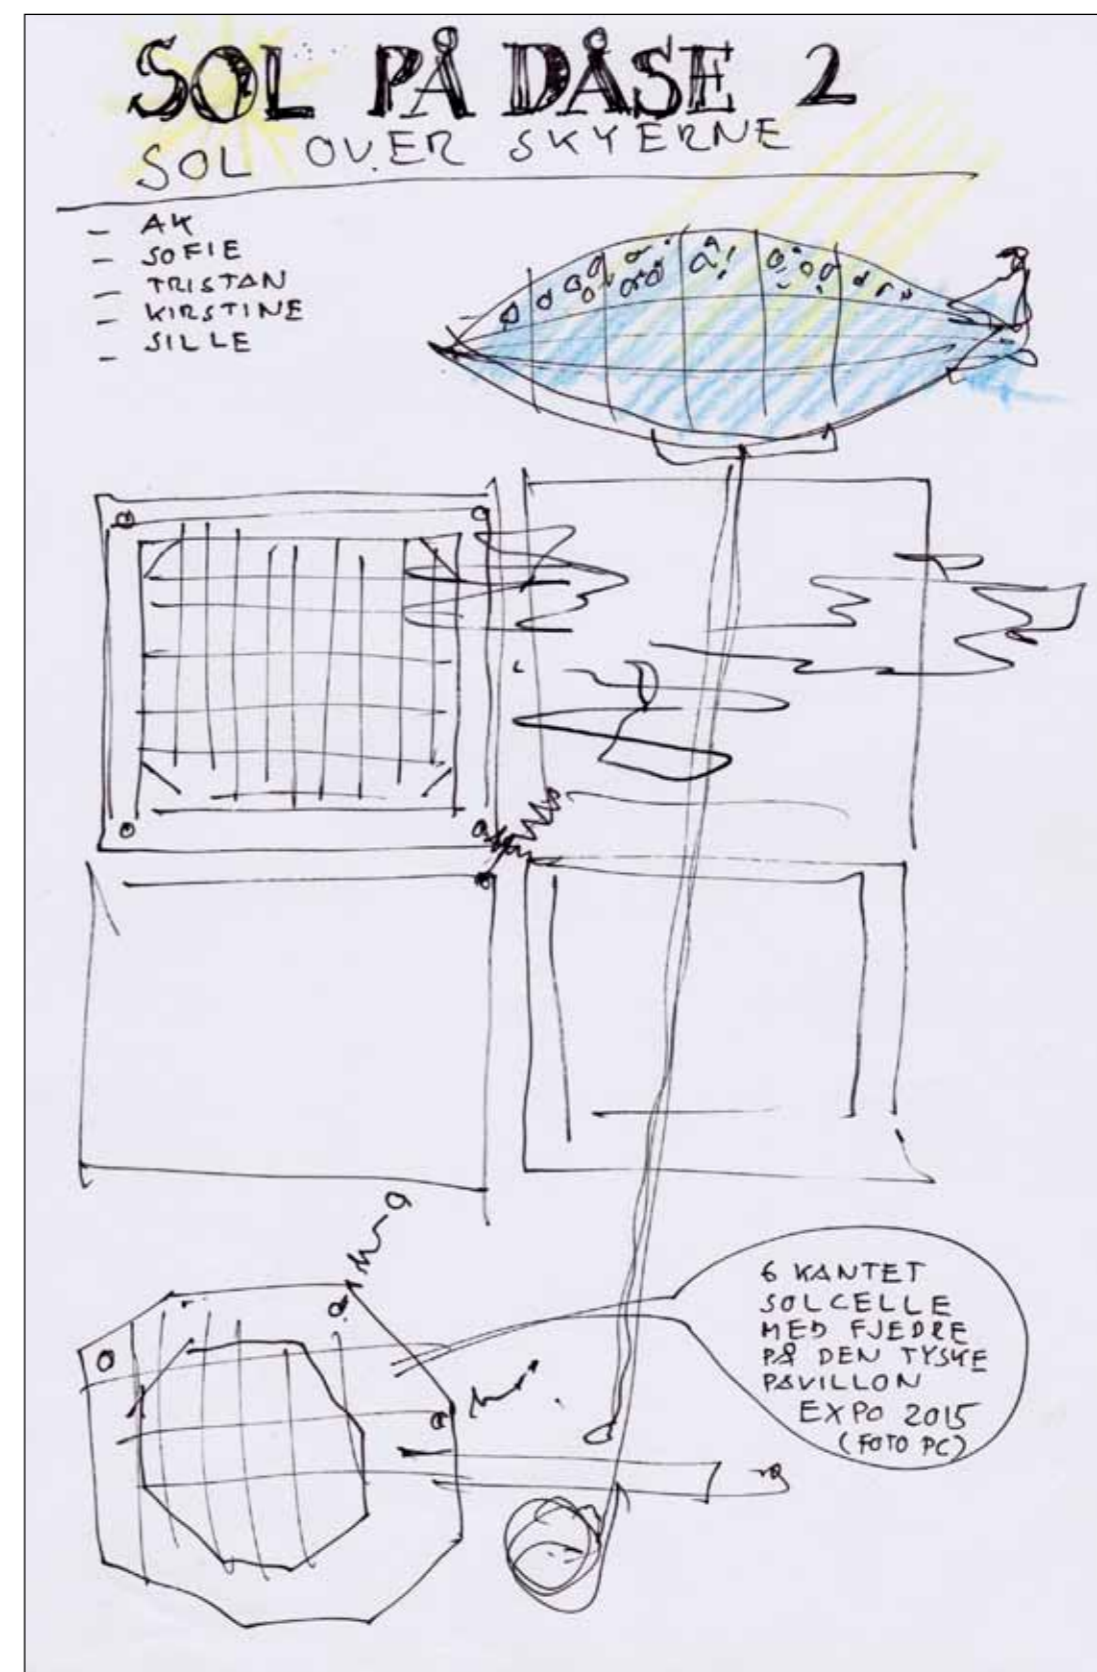 SOL PÅ DÅSE 2
SOL OVER SKYERNE
- AK
- SOFIE
- TRISTAN
- KIRSTINE
- SILLE
6 KANTET
SOLCELLE
MED FJEDRE
PÅ DEN TYSKE
PAVILLON
EXPO 2015
(FOTO PC)